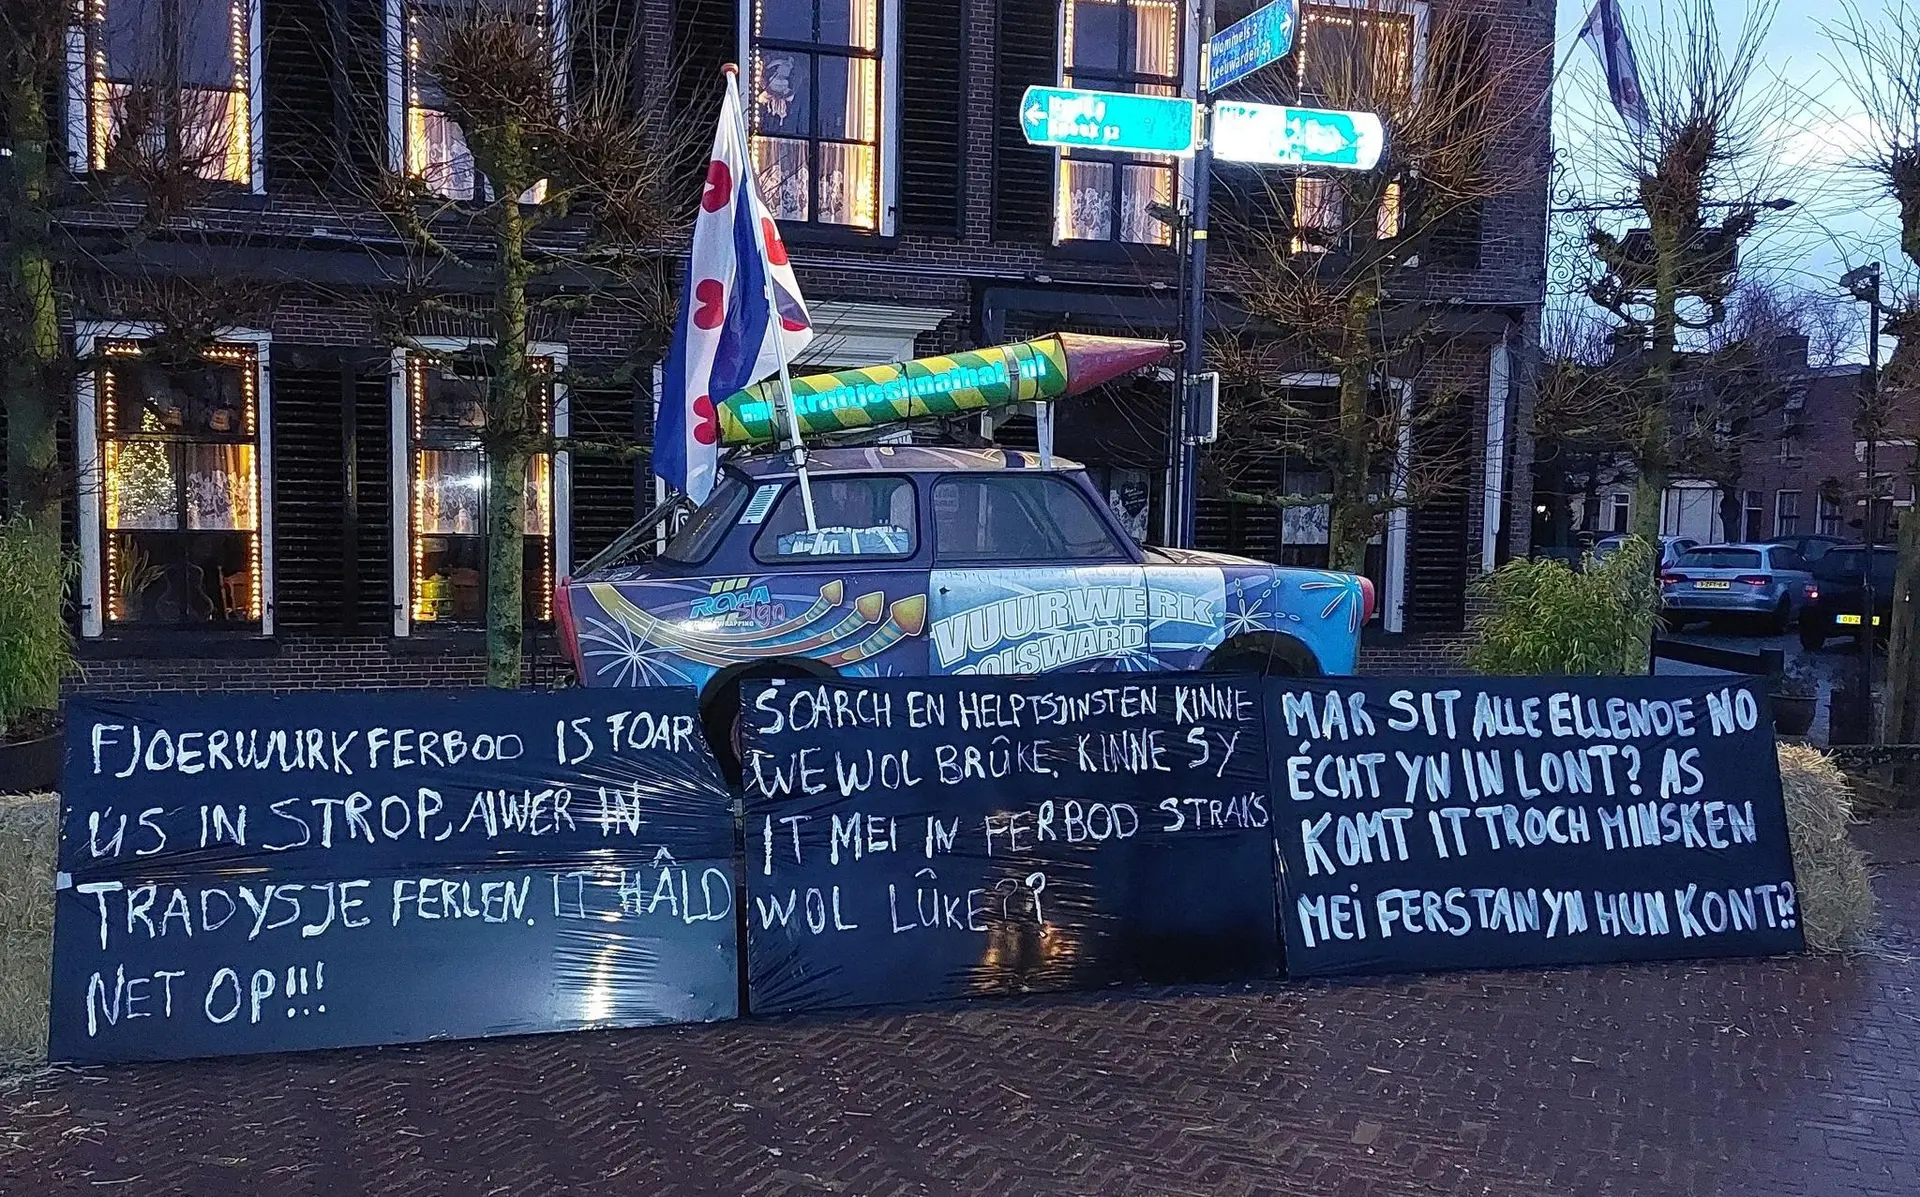 Wommels 2
Leeuwarden 25
kranjesknalhal.nl
ROSA
sign
WRAPPING
VUURWERK
BOLSWARD
FJOERWURKFERBOD IS FOAR
ÚS IN STROP, AIWER IN
TRADYSJE FERLEN. IT HÂLD
NET OP!!!
SOARCH EN HELPTSJINSTEN KINNE
WE WOL BRÛKE. KINNE SY
IT MEI IN FERBOD STRAKS
WOL LÛKE??
MAR SIT ALLE ELLENDE NO
ÉCHT YN IN LONT? AS
KOMT IT TROCH MINSKEN
MEI FERSTAN YN HUN KONT!?